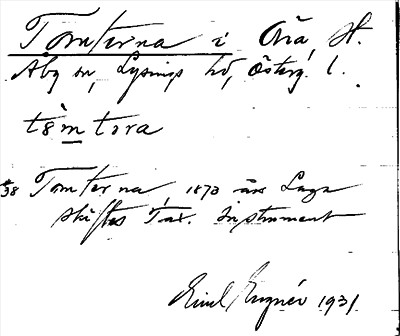 Tomterna i Ötå, St.
Åby sn, Lysings hd, Österg. l.
tòmtora
38 Tomterna, 1873 års Laga
skiftes Tax. Instrument
Emil 1931